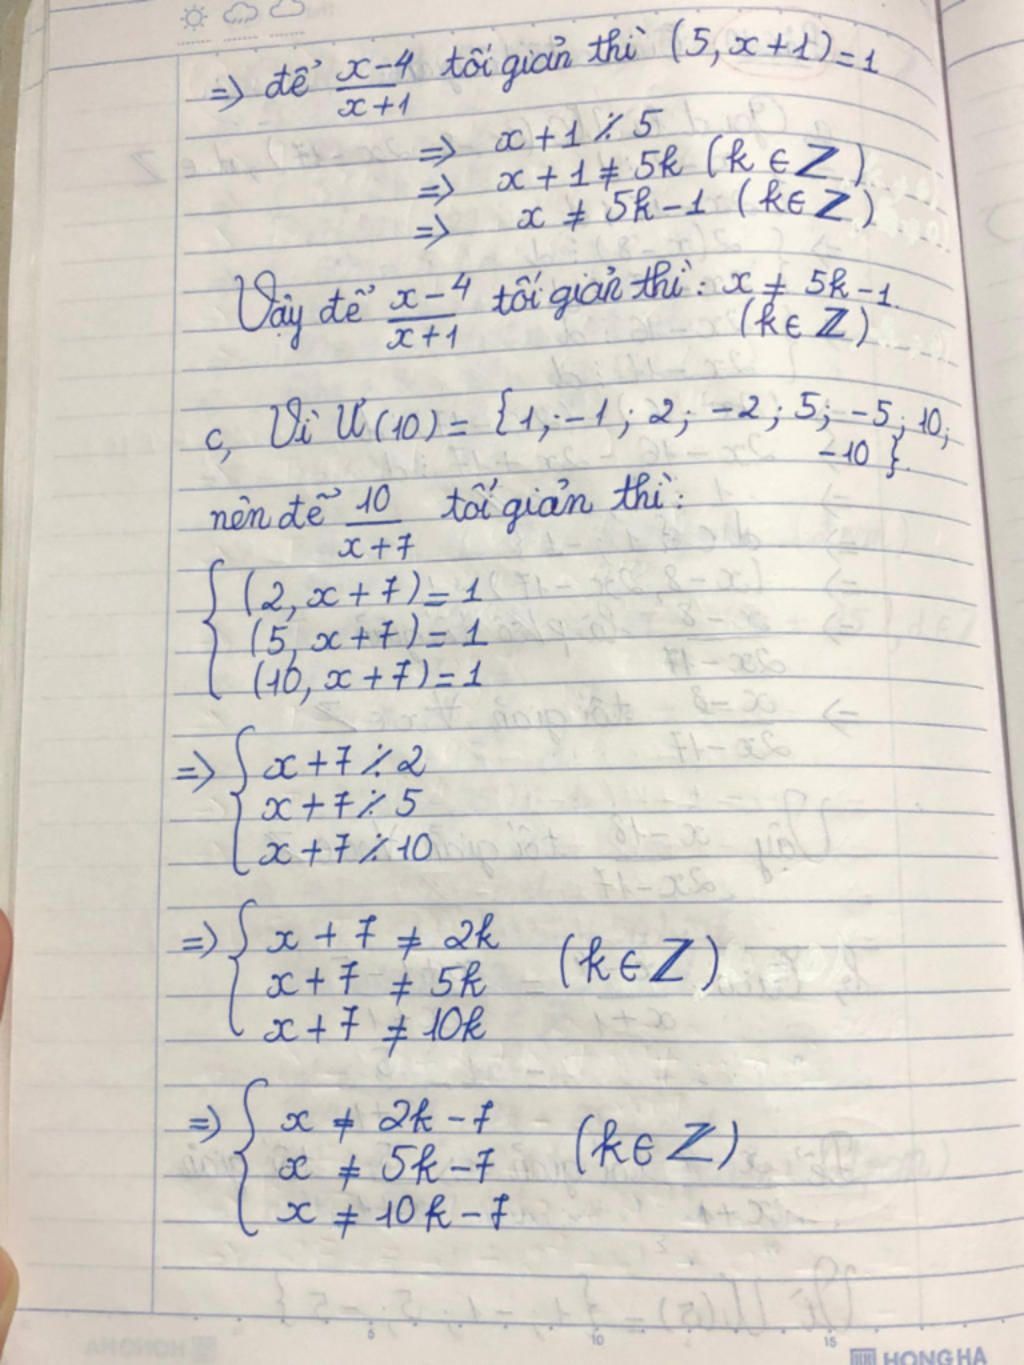 => để x-4/x+1 tối giản thì (5, x+1)=1
=> x+1 ⋮̸ 5
=> x+1 ≠ 5k (k ∈ Z)
=> x ≠ 5k-1 (k ∈ Z)
Vậy để x-4/x+1 tối giản thì: x ≠ 5k-1.
(k ∈ Z)
c, Vì Ư(10) = {1; -1; 2; -2; 5; -5; 10;
-10}.
nên để 10/x+7 tối giản thì:
{ (2, x+7)=1
(5, x+7)=1
(10, x+7)=1
=> { x+7 ⋮̸ 2
x+7 ⋮̸ 5
x+7 ⋮̸ 10
=> { x+7 ≠ 2k
x+7 ≠ 5k (k ∈ Z)
x+7 ≠ 10k
=> { x ≠ 2k-7
x ≠ 5k-7 (k ∈ Z)
x ≠ 10k-7
5 10 15
HONG HA